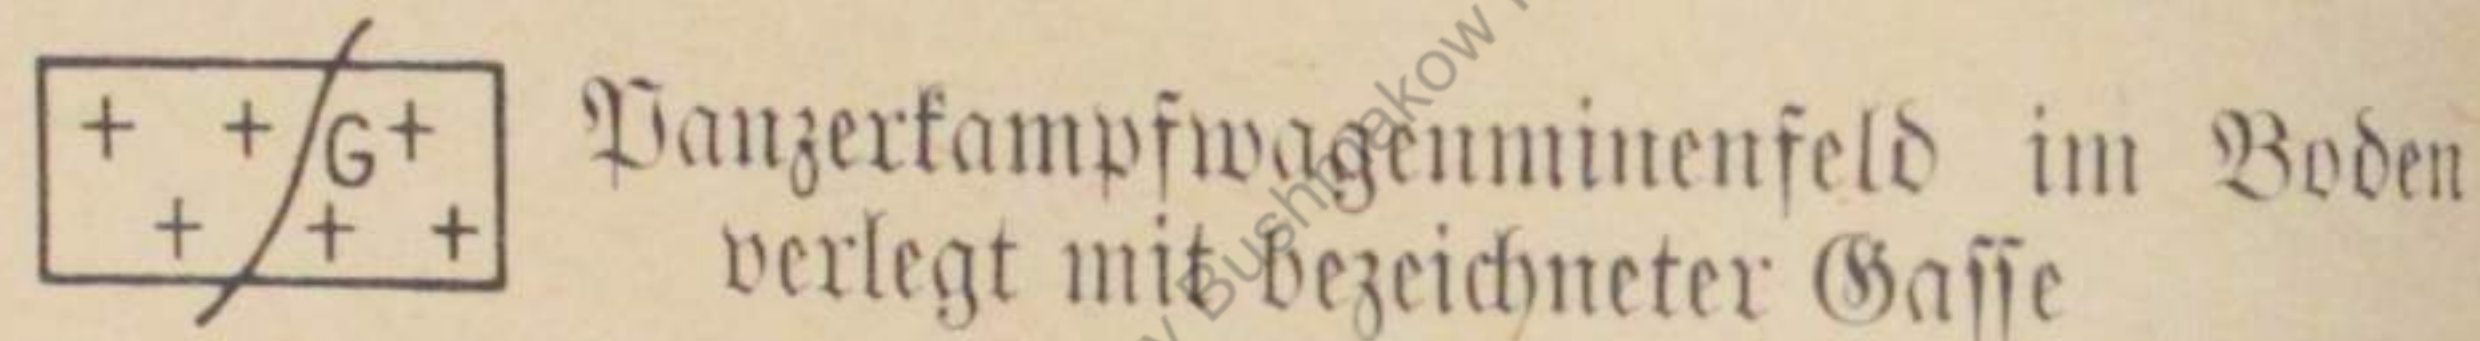 G
Panzerkampfwagenminenfeld im Boden
verlegt mit bezeichneter Gasse
Bushmakow